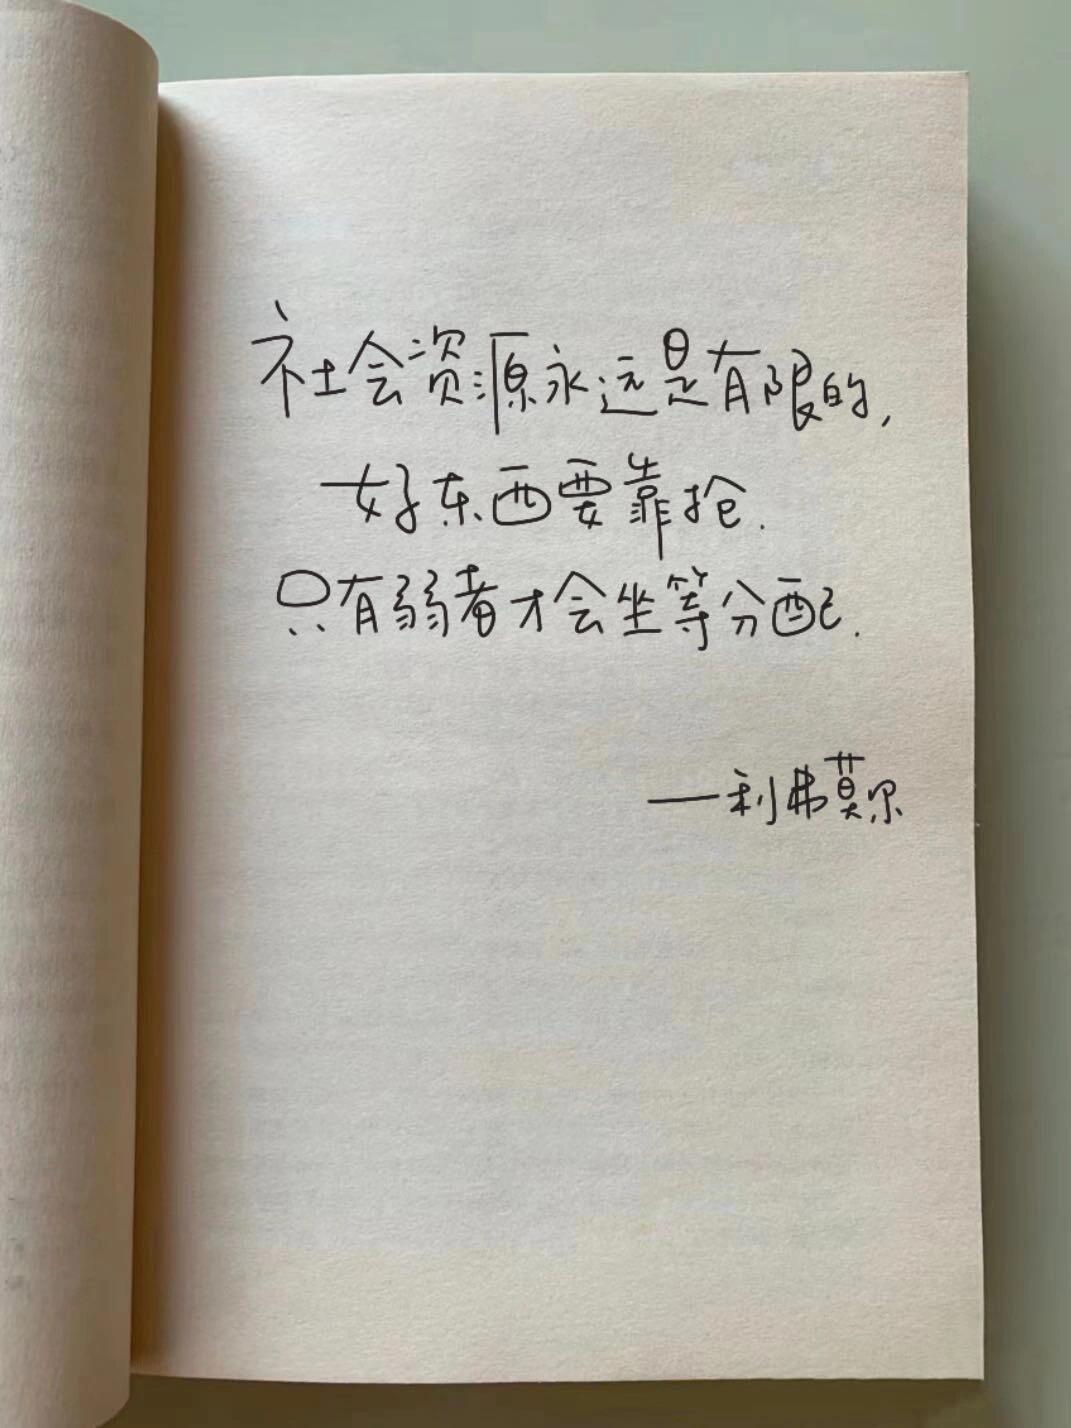 社会资源永远是有限的,
好东西要靠抢.
只有弱者才会坐等分配.
——利弗莫尔